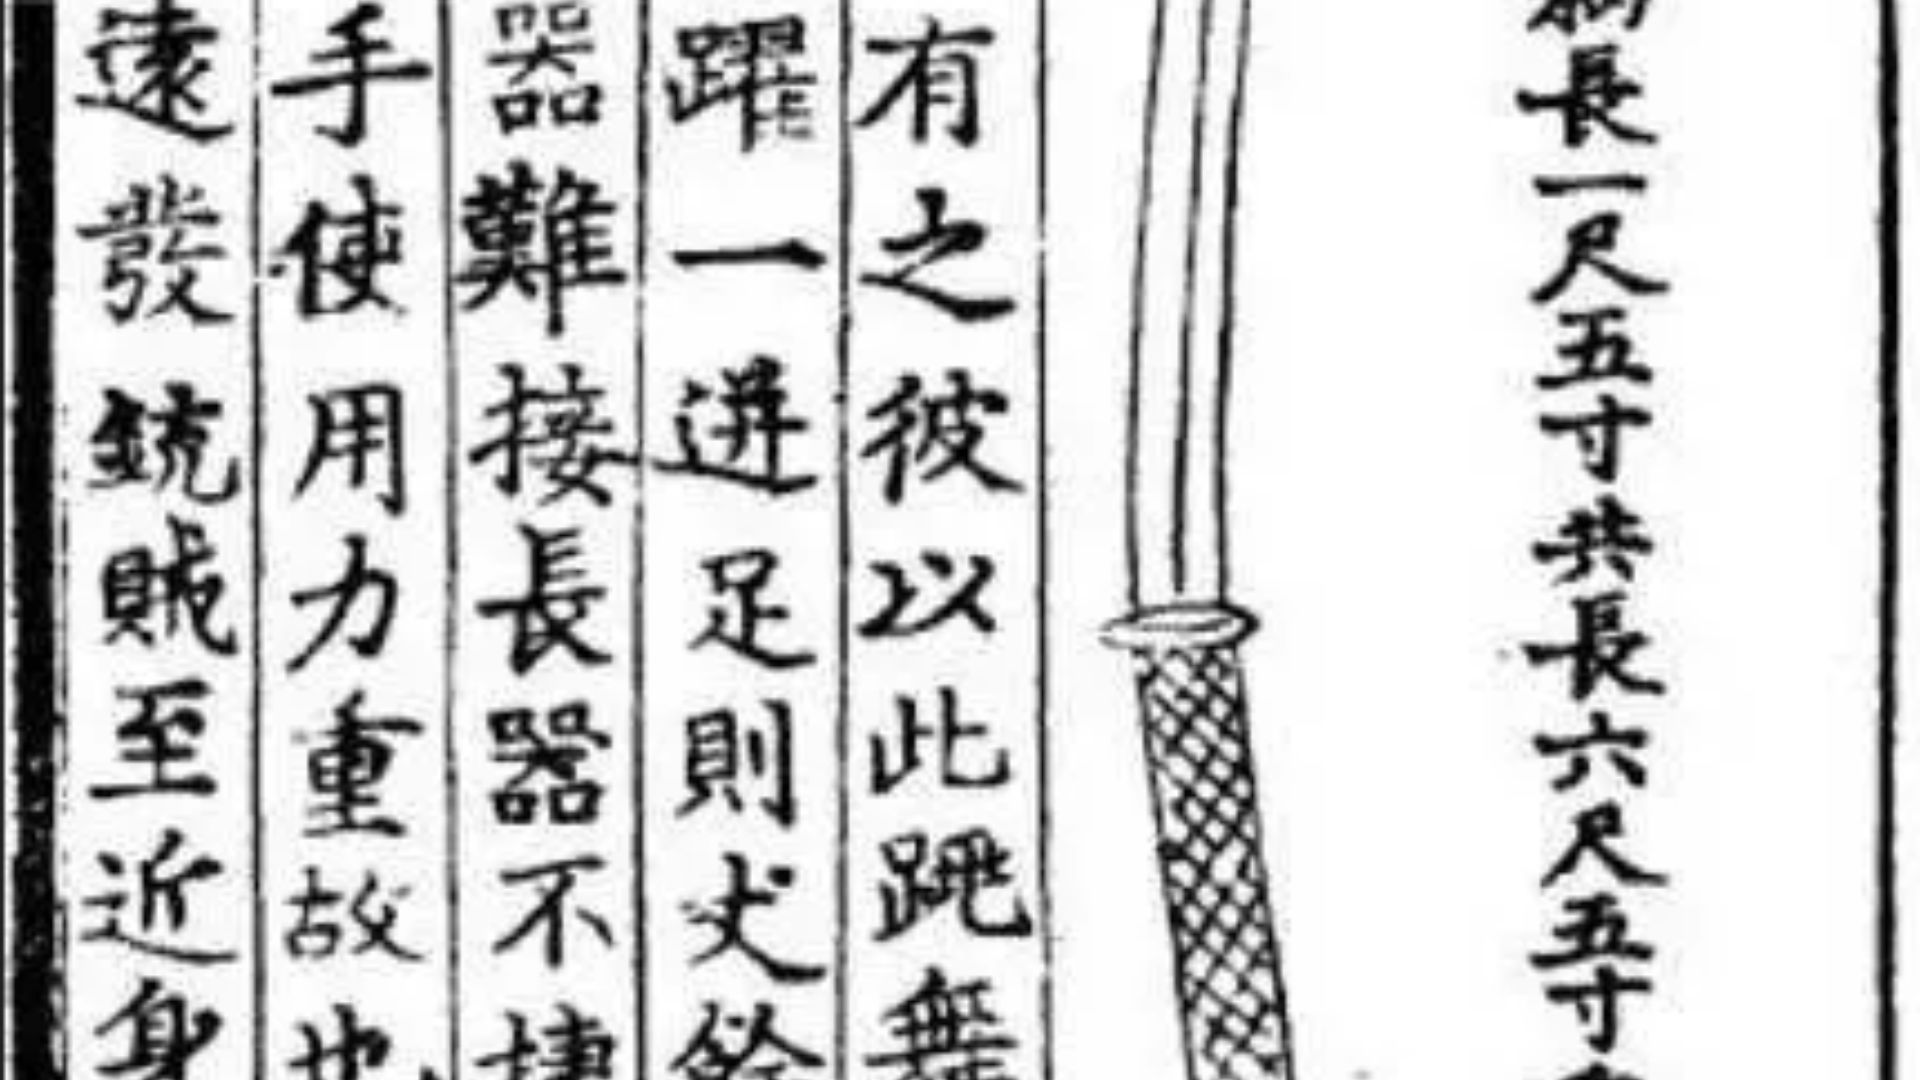 長一尺五寸共長六尺五寸
有之彼以此跳舞
躍一迸足則丈餘
器難接長器不捷
手使用力重故也
遠發銃賊至近身